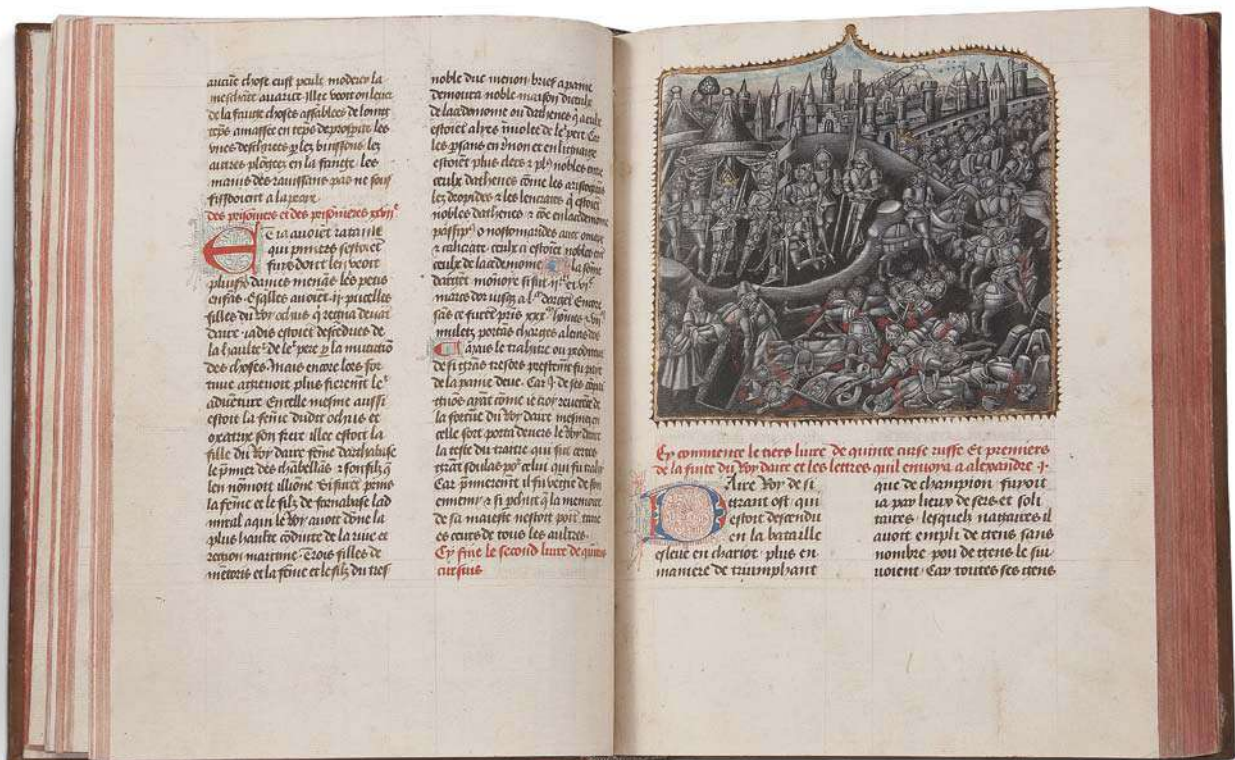 aucune chose eust peule moderer la
meschāt auarice Illec veoit on leuer
de la fange choses assablees de longt
tēps amassee en tēps de prosperite les
vnes deschirees p̱ lez buissons lez
autres plōgees en la fange les
mains des rauissans pas ne souf
fissoient a la proye
des prisoniers et des prisonieres xxvijᵉ
E Ia auoiēt
qui
furs dont len veoit
plusrs̄ dames menās les petis
enfās Esqlles auoiēt ij pucelles
filles du Roy ochus q̄ regna deuāt
daire iadis estoiēt de
la haulteᵉ de leᵉ pere p̱ la mutatiō
des choses Mais encore lors for
tune aggreuoit plus fierem̄t leᵉ
aduēture En celle mesme aussi
estoit la fēme dudit ochus et
oxatrix son frere illec estoit la
fille du Roy daire fēme darthabase
le p̄mier des chābellās ⁊ son filz q̄
len nōmoit illione Si furēt prins
la fēme et le filz de fernabase lad
miral a qui le Roy auoit dōne la
plus haulte cōduite de la riue et
region maritime Trois filles de
mētoris et la fēme et le filz du tres
noble duc menon brief a paine
demoura noble maison dicculx
de lacedemone ou dathenes q̄ aculx
estoiēt
les psans en
estoiēt plus clers ⁊ pl⁹ nobles entre
ceulx dathenes cōme les aristogitō
lez dropides ⁊ les leucrates q̄ estoiēt
nobles dathenes ⁊ cōe en lacedemone
pasipp⁹ o nostomandes auec omay
⁊ calicrate ceulx cy estoiēt nobles entre
ceulx de lacedemone la sōme
dargēt mōnoye si fut ijᶜ et vjᵐ
marcs dor vijxx a lᵐ dargēt Encore
sās ce furēt pris xxxᵐ hōmes ⁊ vijᵐ
muletz portās charges a leurs dos
Mais le trahitre ou proditeur
de si grās tresors prestemēt fu paye
de la paine deue Car j de ses cōpai
gnōs ayāt cōme ie croy reuerēce de
la fortūe du Roy daire mesmes en
celle sort porta deuers le Roy daire
la teste du traitre qui fut certes
grāt soulas po² celui qui fu trahy
Car p̄mierem̄t il fu vengie de son
ennemy ⁊ si pchut q̄ la memoire
de sa maieste nestoit point tāne
es ceurs de tous les aultres
Cy fine le second liure de quinte
cursius
Cy commence le tiers liure de quinte curse ruffe Et premiers
de la fuite du Roy daire et les lettres quil enuoya a alexandre j
Daire Roy de si
grant ost qui
estoit descendu
en la bataille
esleue en chariot plus en
maniere de triumphant
que de champion fuyoit
ia par lieux desers et soli
taires lesquelz nagaires il
auoit empli de gens sans
nombre pou de gens le sui
uoient Car toutes ses gens